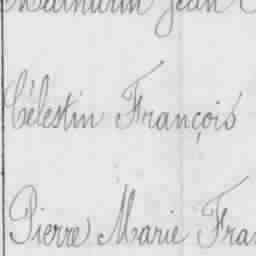 Mathurin Jean
Célestin François
Pierre Marie Fra